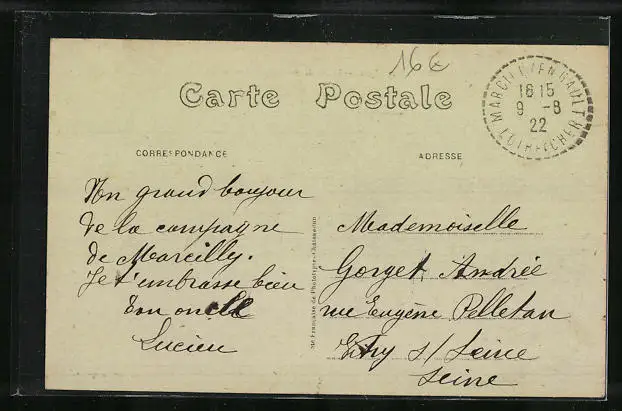 16€
Carte Postale
MARCILLY EN GAULT
18 15
9 -8
22
LOIR ET CHER
CORRESPONDANCE
ADRESSE
Un grand bonjour
de la campagne
de Marcilly.
Je t'embrasse bien
Ton oncle
Lucien
Sté Française de Phototypie - Châteaudun
Mademoiselle
Gorget Andrée
rue Eugène Pelletan
Vitry s/ Seine
Seine